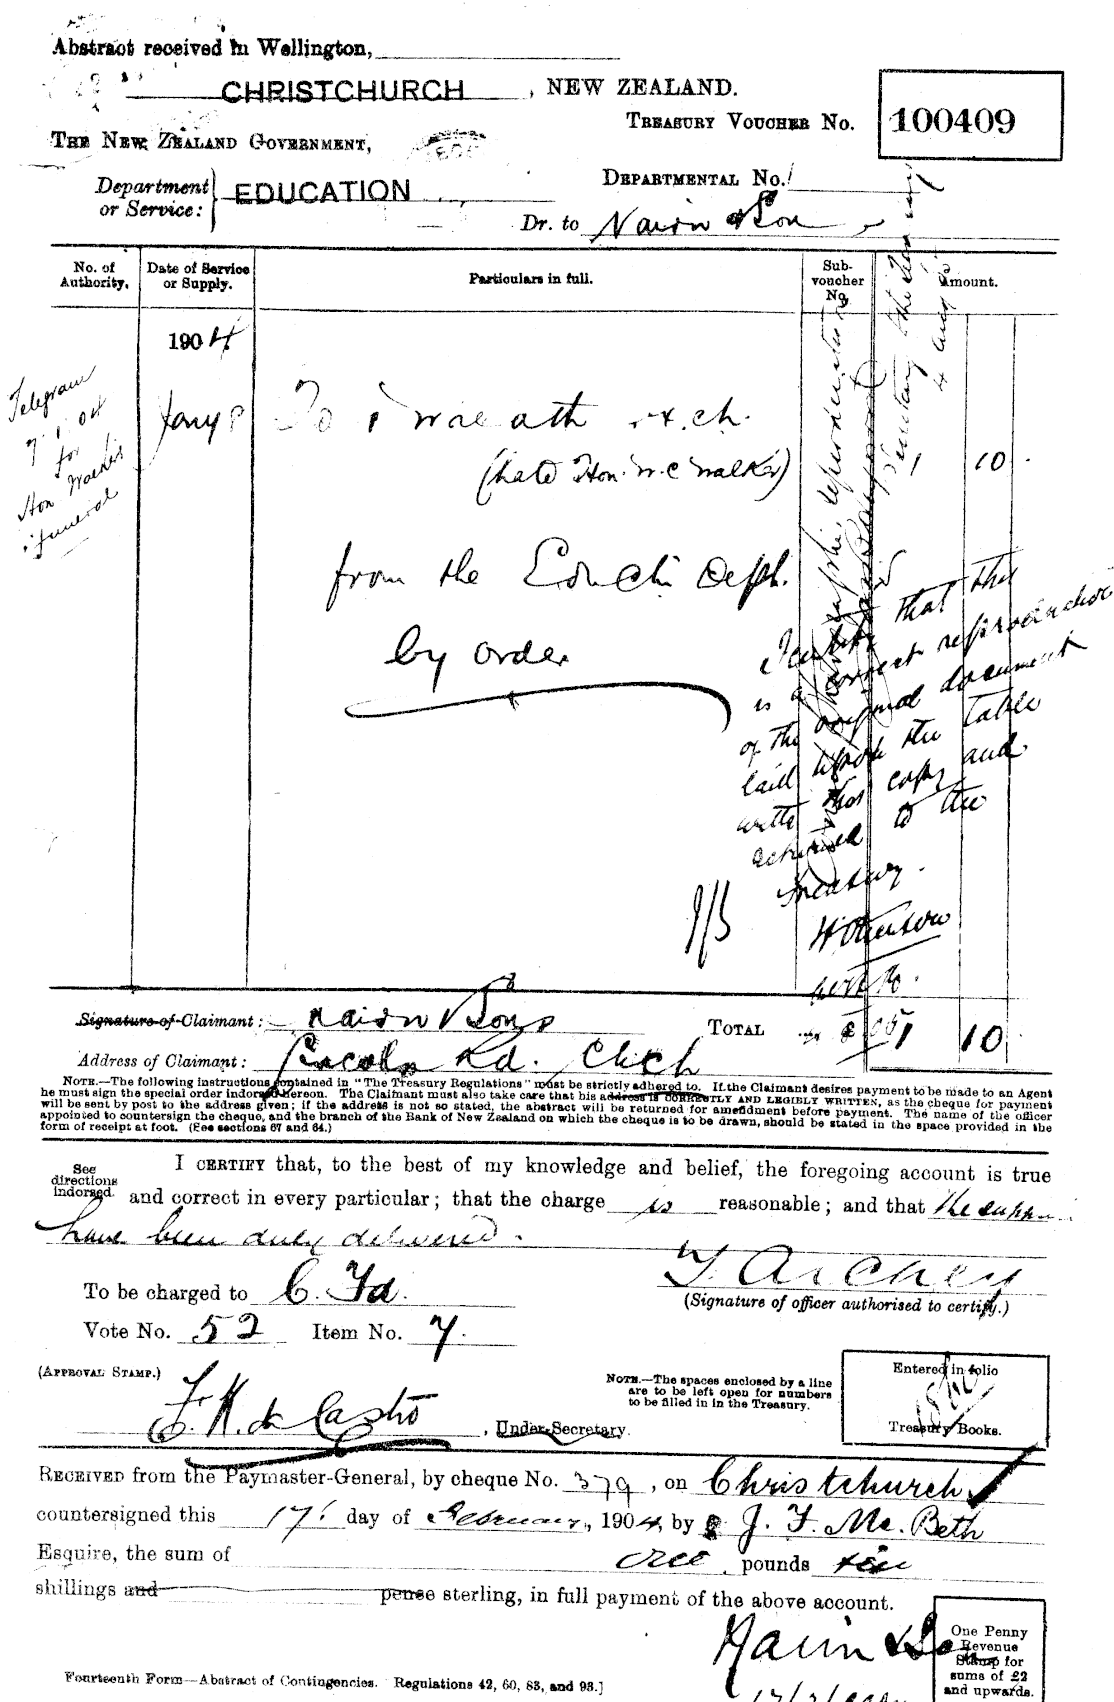 Abstract received in Wellington,
CHRISTCHURCH, NEW ZEALAND.
TREASURY VOUCHER No. 100409
THE NEW ZEALAND GOVERNMENT,
DEPARTMENTAL No.
Department or Service: EDUCATION
Dr. to Nairn & Son
No. of Authority. Date of Service or Supply. Particulars in full. Sub-voucher No. Amount.
1904
Telegram
7.1.04
for
Hon Walkers
funeral
Jany 8 To 1 wreath
(late Hon. W. C Walker) 1 10
from the Eductn Dept.
by order
I certify that this
is a correct reproduction
of the original document
laid upon the table
with this copy and
returned to the
Treasury.
Signature of Claimant: Nairn & Sons TOTAL 1 10
Address of Claimant: Lincoln Rd. Chch
NOTE.—The following instructions contained in "The Treasury Regulations" must be strictly adhered to. If the Claimant desires payment to be made to an Agent
he must sign the special order indorsed hereon. The Claimant must also take care that his address is CORRECTLY AND LEGIBLY WRITTEN, as the cheque for payment
will be sent by post to the address given; if the address is not so stated, the abstract will be returned for amendment before payment. The name of the officer
appointed to countersign the cheque, and the branch of the Bank of New Zealand on which the cheque is to be drawn, should be stated in the space provided in the
form of receipt at foot. (See sections 67 and 84.)
See directions indorsed.
I CERTIFY that, to the best of my knowledge and belief, the foregoing account is true
and correct in every particular; that the charge is reasonable; and that the
have been duly delivered.
(Signature of officer authorised to certify.)
To be charged to C. Fd.
Vote No. 52 Item No. 7.
(APPROVAL STAMP.)
NOTE.—The spaces enclosed by a line
are to be left open for numbers
to be filled in in the Treasury.
Entered in folio
Treasury Books.
F. K. de Castro, Under-Secretary.
RECEIVED from the Paymaster-General, by cheque No. 379, on Christchurch
countersigned this 17 day of February, 1904, by J. F. Mc. Beth
Esquire, the sum of one pounds ten
shillings and pence sterling, in full payment of the above account.
Nairn & Son
One Penny
Revenue
Stamp for
sums of £2
and upwards.
Fourteenth Form—Abstract of Contingencies. Regulations 42, 60, 83, and 93.]